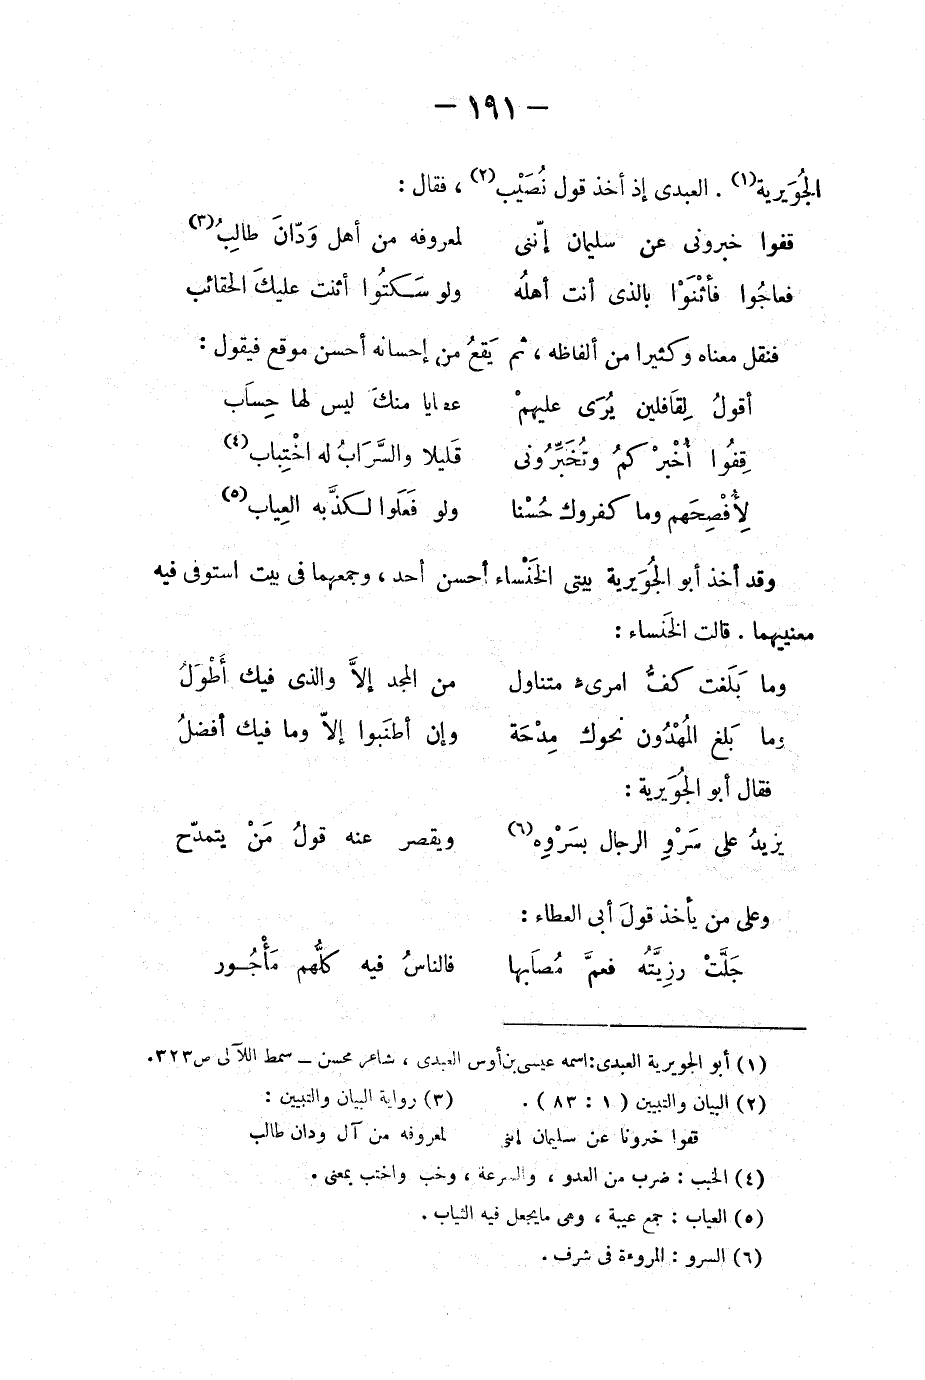 — ١٩١ —
الجُوَيرية(١) . العبدى إذ أخذ قول نُصَيْب(٢) ، فقال :
قفوا خبرونى عن سليمان إنّنى لمعروفه من أهل وَدّانَ طالِبُ(٣)
فعاجُوا فأثْنَوْا بالذى أنت أهلُه ولو سَكتُوا أثنت عليكَ الحقائب
فنقل معناه وكثيرا من ألفاظه ، ثم يَقعُ من إحسانه أحسن موقع فيقول :
أقولُ لِقافلين يُرَى عليهمْ عطايا منكَ ليس لها حِسَاب
قِفُوا أُخْبرْكمُ وتُخَبِّرُونى قَليلا والسَّرَابُ له اخْتِباب(٤)
لِأُفْصِحَهم وما كفروك حُسْنا ولو فَعَلوا لكذَّبه العِياب(٥)
وقد أخذ أبو الجُوَيرية بيتى الخَنْساء أحسن أحد ، وجمعهما فى بيت استوفى فيه
معنييهما . قالت الخَنساء :
وما بَلَغت كفُّ امرىء متناول من المجد إلاَّ والذى فيك أَطْوَلُ
وما بَلغ المُهْدُون نحوك مِدْحَة وإن أطنَبوا إلاّ وما فيك أفضلُ
فقال أبو الجُوَيرية :
يزيدُ على سَرْوِ الرجال بسَرْوِه(٦) ويقصر عنه قولُ مَنْ يتمدّح
وعلى من يأخذ قولَ أبى العطاء :
جَلَّتْ رزِيَّتُه فعمَّ مُصَابها فالناسُ فيه كلُّهم مَأْجُور
(١) أبو الجويرية العبدى: اسمه عيسى بن أوس العبدى ، شاعر محسن — سمط اللآلى ص٣٢٣.
(٢) البيان والتبيين ( ١ : ٨٣ ) . (٣) رواية البيان والتبيين :
قفوا خبرونا عن سليمان إننى لمعروفه من آل ودان طالب
(٤) الخبب : ضرب من العدو ، والسرعة ، وخب واختب بمعنى .
(٥) العياب : جمع عيبة ، وهى مايجعل فيه الثياب .
(٦) السرو : المروءة فى شرف .